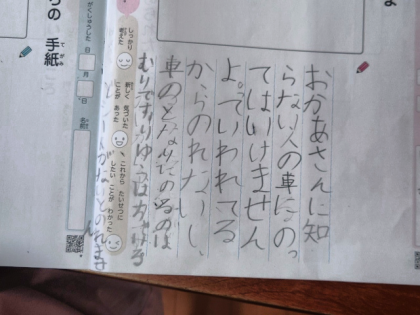 おかあさんに知
らない人の車にのっ
てはいけません
よ。ていわれてる
からのれないし、
車のとなりにのるのは
しっかり
考えた
新しく 気づいた
ことが あった
これから たいせつに
したい ことが わかった
がくしゅうした 日
月
日
名前
らの 手紙
てがみ